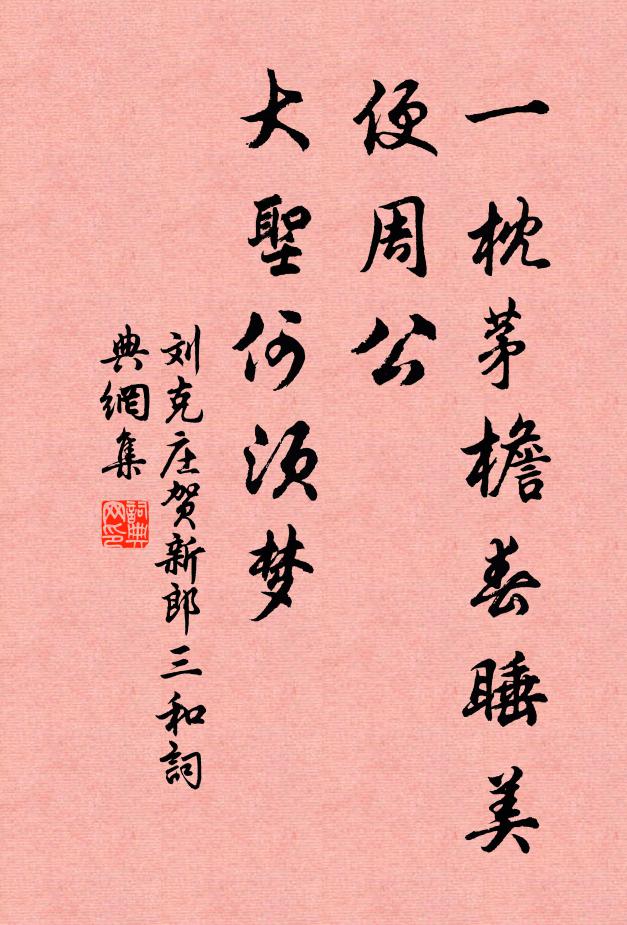 一枕茅檐春睡美
便周公
大聖何须梦
刘克庄贺新郎三和詞
典網集
詞典
网印